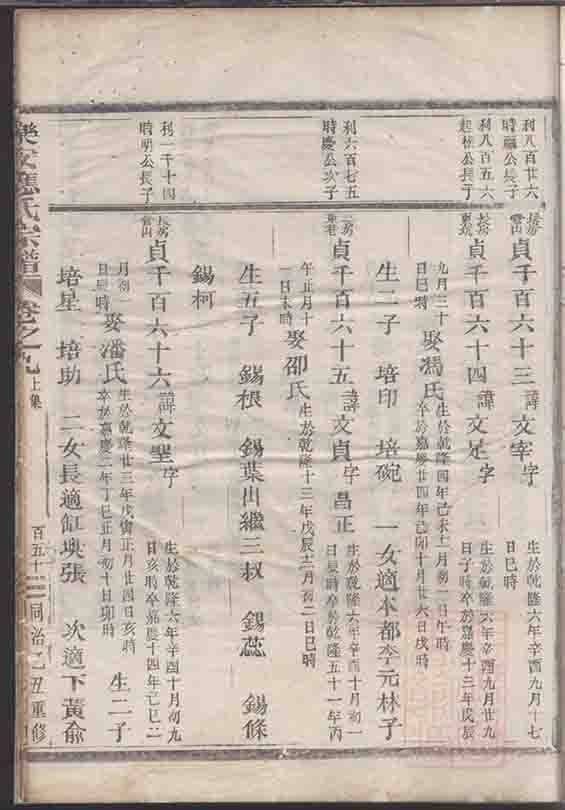 利八百廿六
時顯公長子
長房
雲山
貞千百六十三
諱文宰字
生於乾隆六年辛酉九月十七
日巳時
利八百五六
起椿公長子
長房
貞千百六十四
諱文足字
生於乾隆六年辛酉九月廿九
日子時卒於嘉慶十三年戊辰
九月三十
日巳時
娶馮氏
生於乾隆四年己未十二月初一日午時
卒於嘉慶廿四年己卯十月廿六日戌時
生二子 培印 培碗 一女適本都李元林子
利六百七五
時慶公次子
貞千百六十五
諱文貞字昌正
生於乾隆六年辛酉十月初一
日辰時卒於乾隆五十一年丙
午正月十
一日未時
娶邵氏
生於乾隆十三年戊辰十二月初二日巳時
生五子 錫根 錫葉出繼三叔 錫蕊 錫條
錫柯
利一千十四
時明公長子
長房
雲山
貞千百六十六
諱文聖字
生於乾隆六年辛酉十月初九
日亥時卒嘉慶十四年己巳二
月初一
日辰時
娶潘氏
生於乾隆廿三年戊寅正月廿四日亥時
卒於嘉慶二年丁巳正月初十日卯時
生二子
培星 培助 二女長適缸塽張 次適下黃俞
樂安蔣氏宗譜 卷之九上集 百五十二 同治乙丑重修